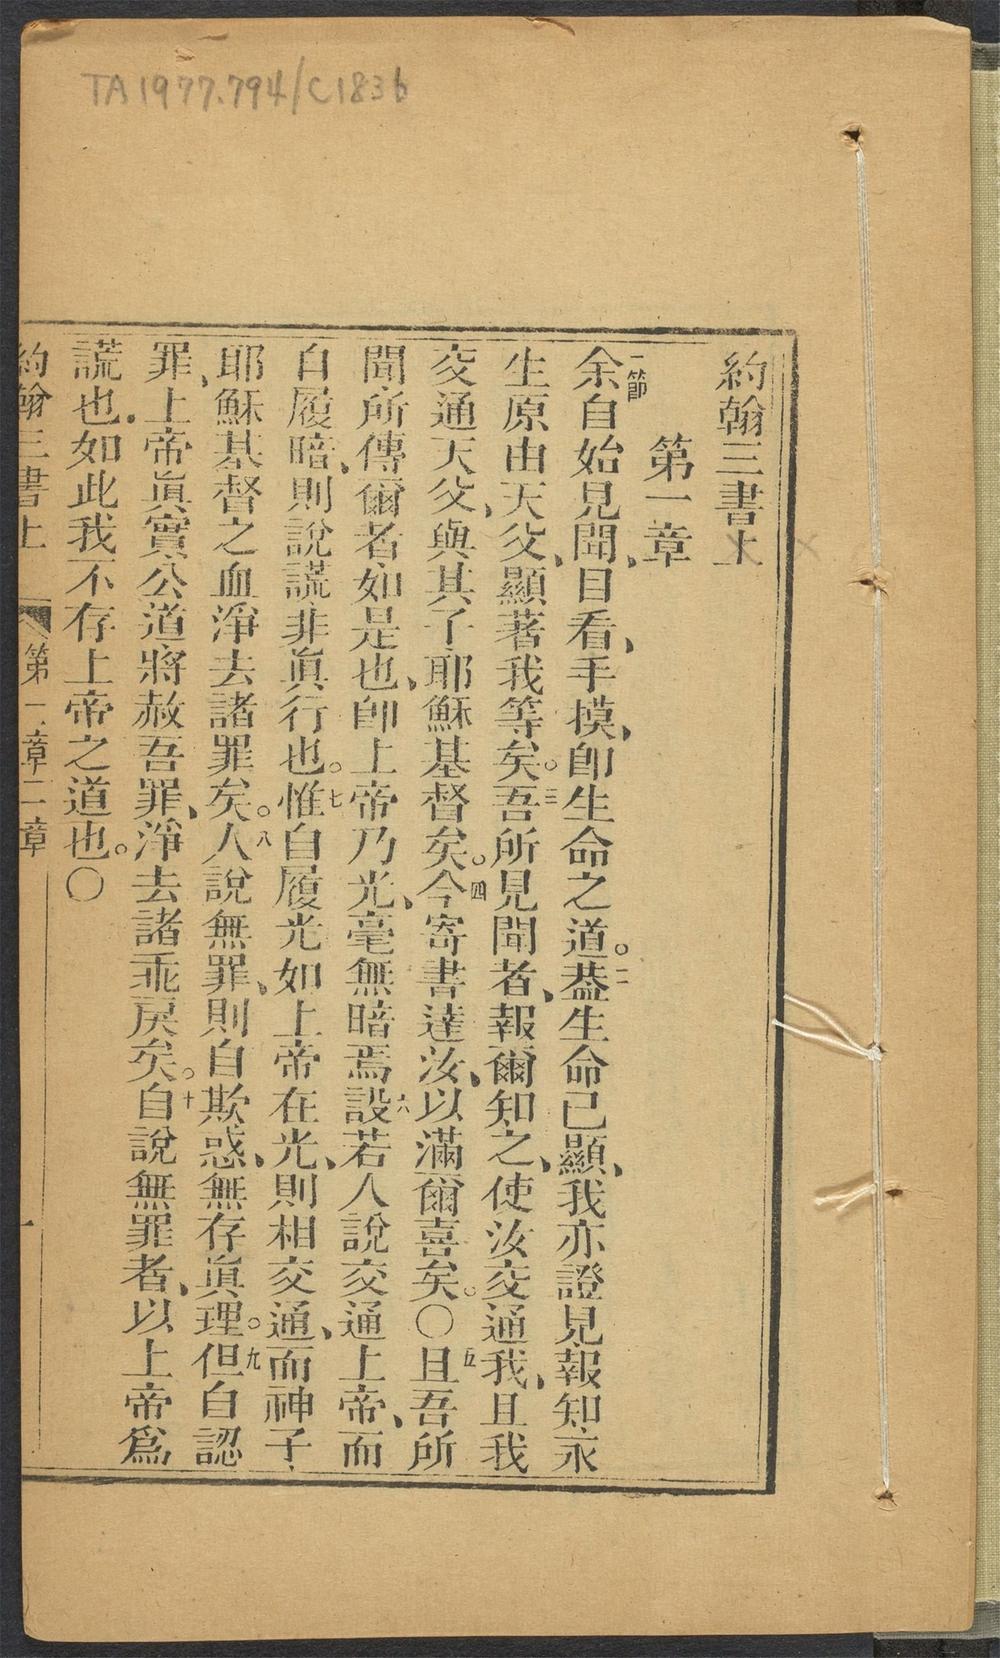 TA 1977.794/C1836
約翰三書上
第一章
一節余自始見聞、目看、手摸、卽生命之道。二葢生命已顯、我亦證見報知永
生原由天父、顯著我等矣。三吾所見聞者、報爾知之、使汝交通我、且我
交通天父、與其子耶穌基督矣。四今寄書達汝、以滿爾喜矣。〇五且吾所
聞所傳爾者如是也、卽上帝乃光、毫無暗焉六設若人說交通上帝、而
自履暗、則說謊非眞行也。七惟自履光如上帝在光、則相交通、而神子
耶穌基督之血淨去諸罪矣。八人說無罪、則自欺惑、無存眞理。九但自認
罪、上帝眞實公道將赦吾罪、淨去諸乖戾矣。十自說無罪者、以上帝爲
謊也.如此我不存上帝之道也。〇
約翰三書上 第一章二章 一